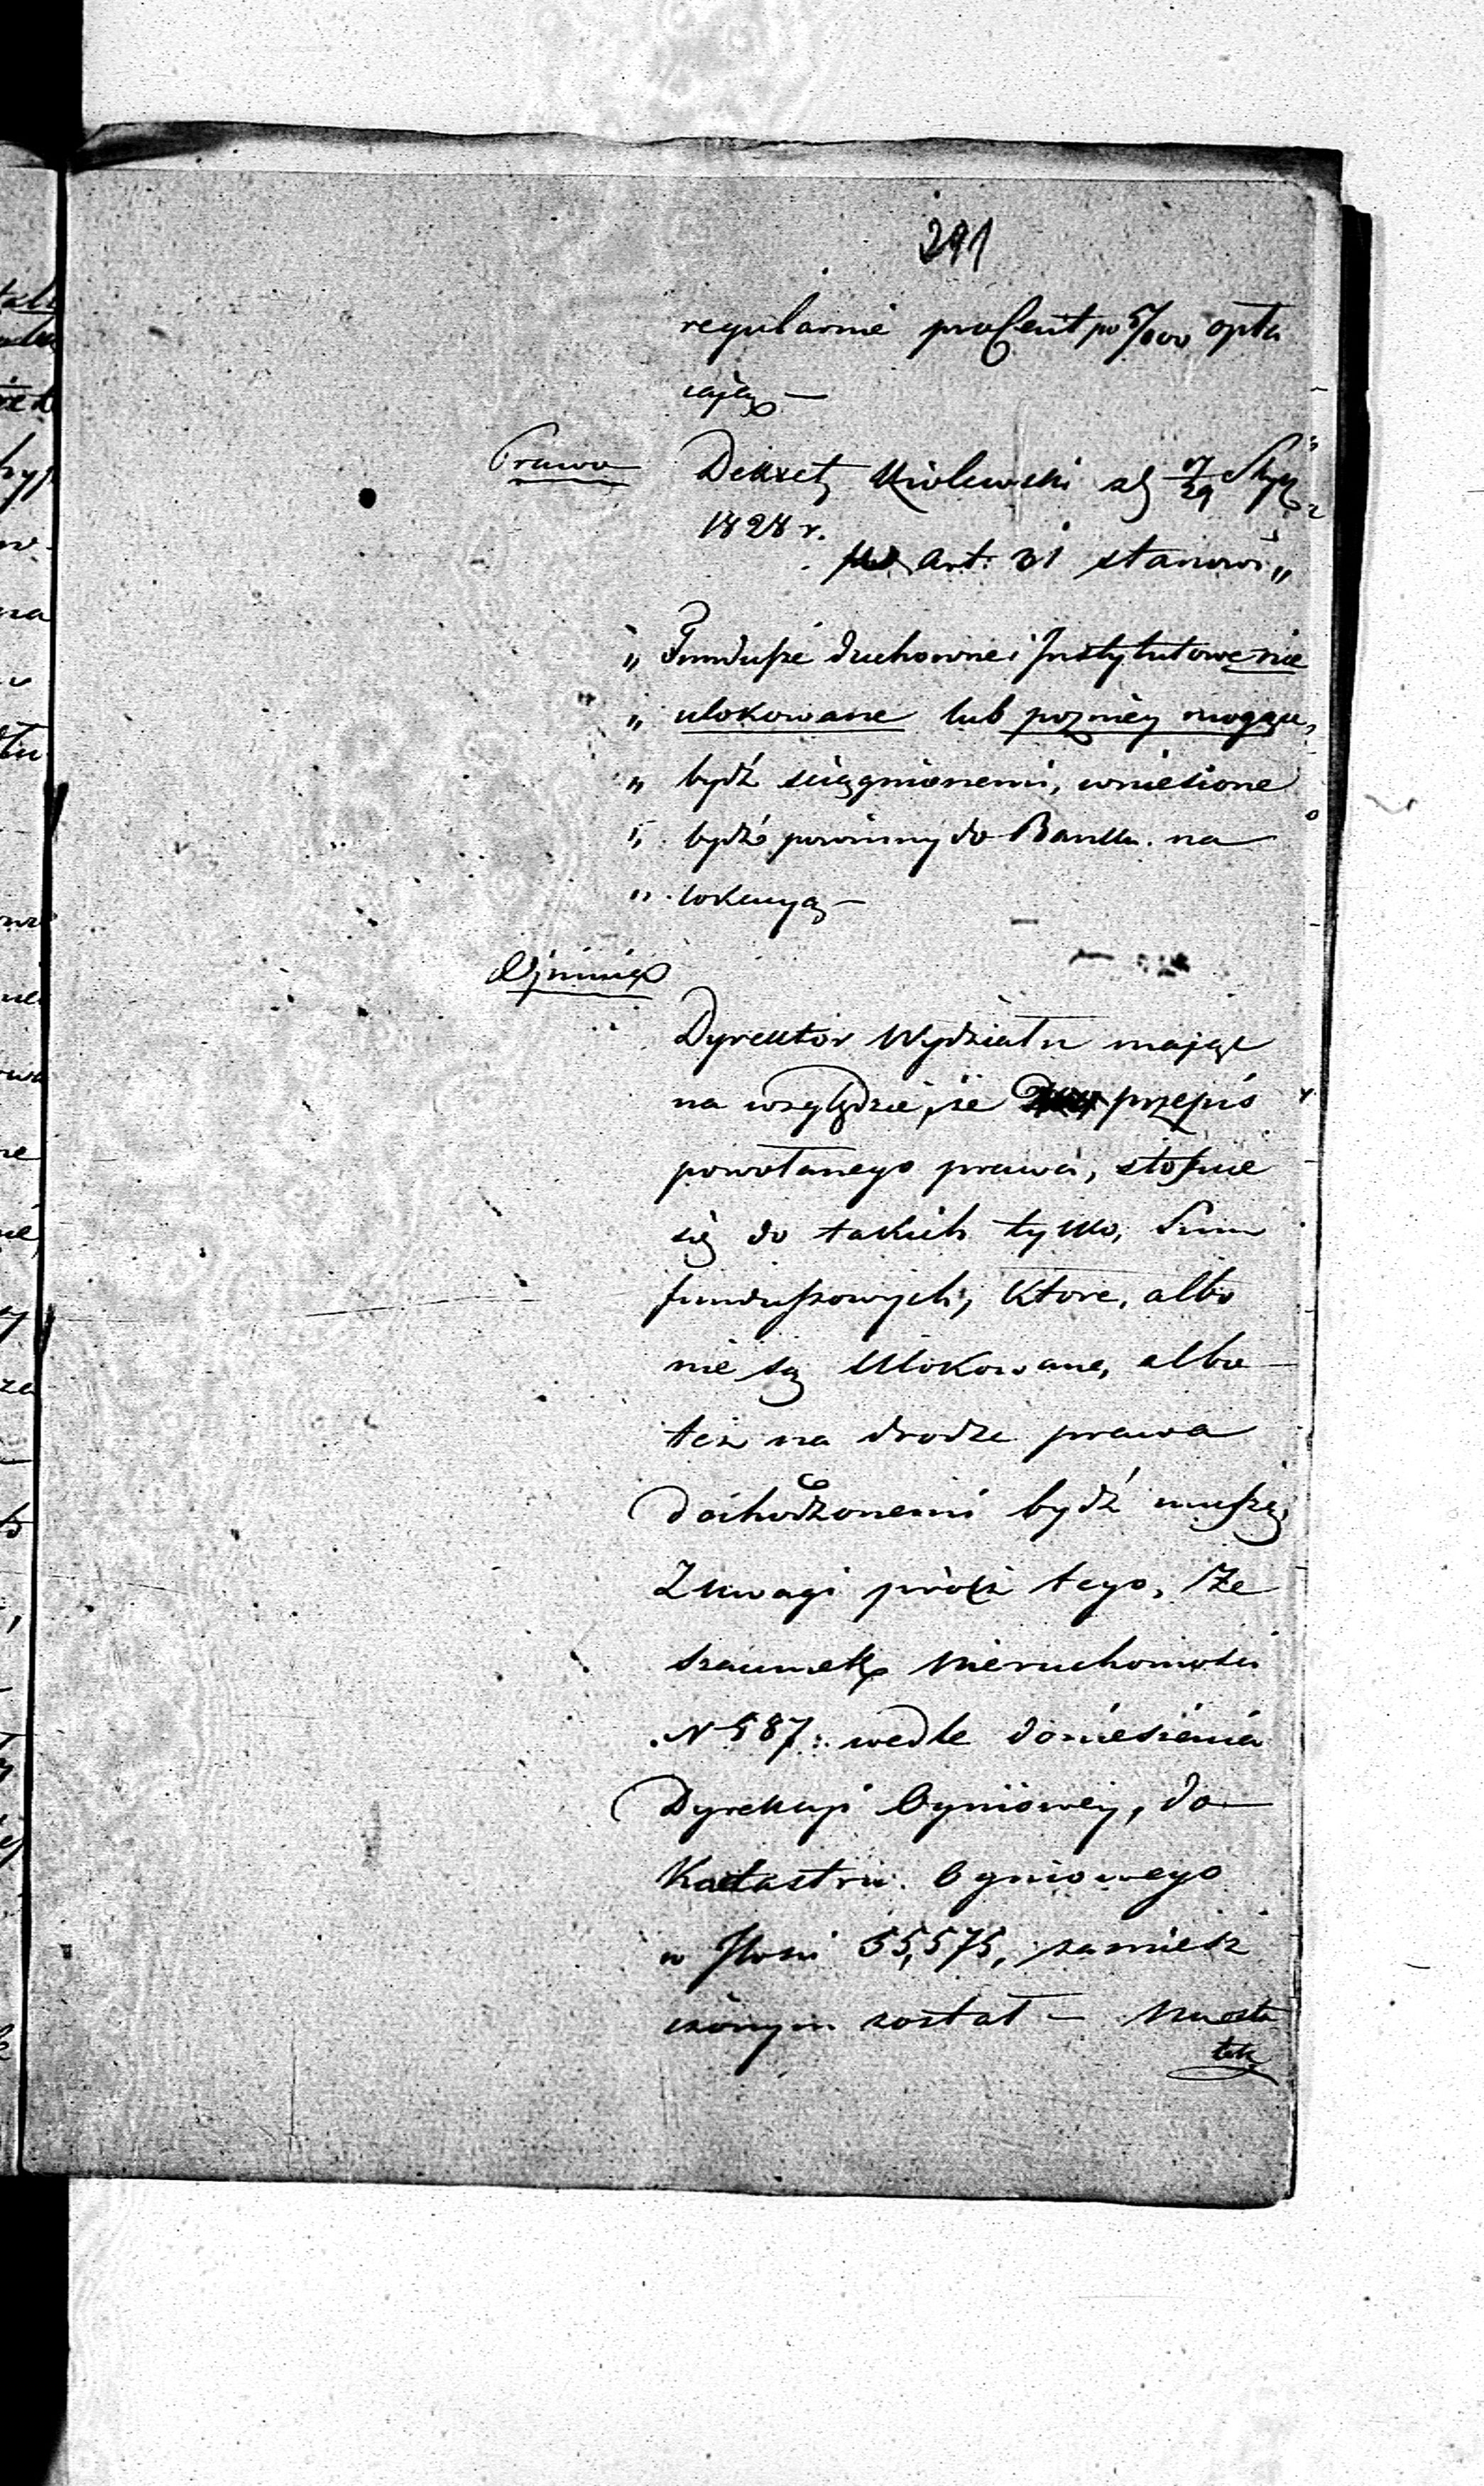 291
regularnie procent po 5/100 opła
cają —
Prawo
Dekret Królewski z d 17/29 Stycz
1828 r.
pod art: 31 stanowi „
„ Fundusze duchowne i Instytutowe nie
„ ulokowane lub pozniey mogące
„ bydź sciągnionemi, wniesione
„ bydź powinny do Banku na
„ lokacyą —
Opinia
Dyrektor Wydziału mając
na względzie, że przepis
powołanego prawa, stosuie
się do takich tylko, Summ
funduszowych, ktore, albo
nie są ulokowane, albo
też na drodze prawa
dochodzonemi bydź muszą
Z uwagi prócz tego, że
szacunek nieruchomości
N 587: wedle doniesienia
Dyrekcyi Ogniowey, do
Katastru Ogniowego
w Ilosci 55,575, zamiesz
czonym został —
tek